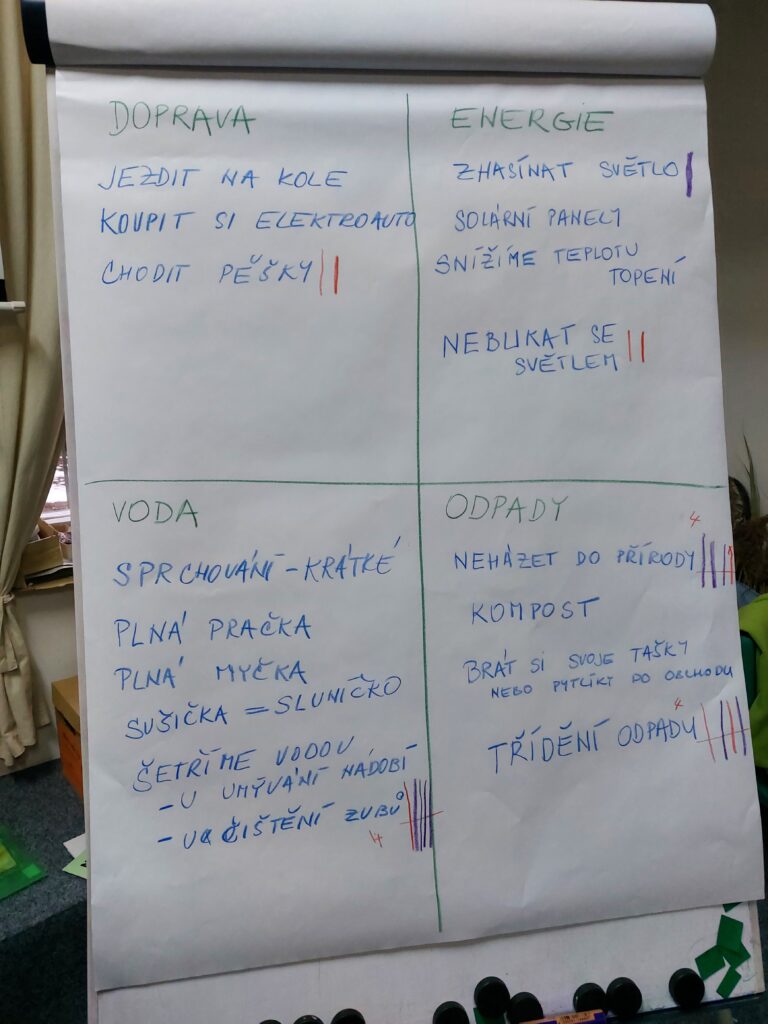 DOPRAVA
JEZDIT NA KOLE
KOUPIT SI ELEKTROAUTO
CHODIT PĚŠKY
ENERGIE
ZHASÍNAT SVĚTLO
SOLÁRNÍ PANELY
SNÍŽÍME TEPLOTU
TOPENÍ
NEBLIKAT SE
SVĚTLEM
VODA
SPRCHOVÁNÍ - KRÁTKÉ
PLNÁ PRAČKA
PLNÁ MYČKA
SUŠIČKA = SLUNÍČKO
ŠETŘÍME VODOU
- U UMÝVÁNÍ NÁDOBÍ
- U ČIŠTĚNÍ ZUBŮ
4
ODPADY
4
NEHÁZET DO PŘÍRODY
KOMPOST
BRÁT SI SVOJE TAŠKY
NEBO PYTLÍKY DO OBCHODU
4
TŘÍDĚNÍ ODPADU